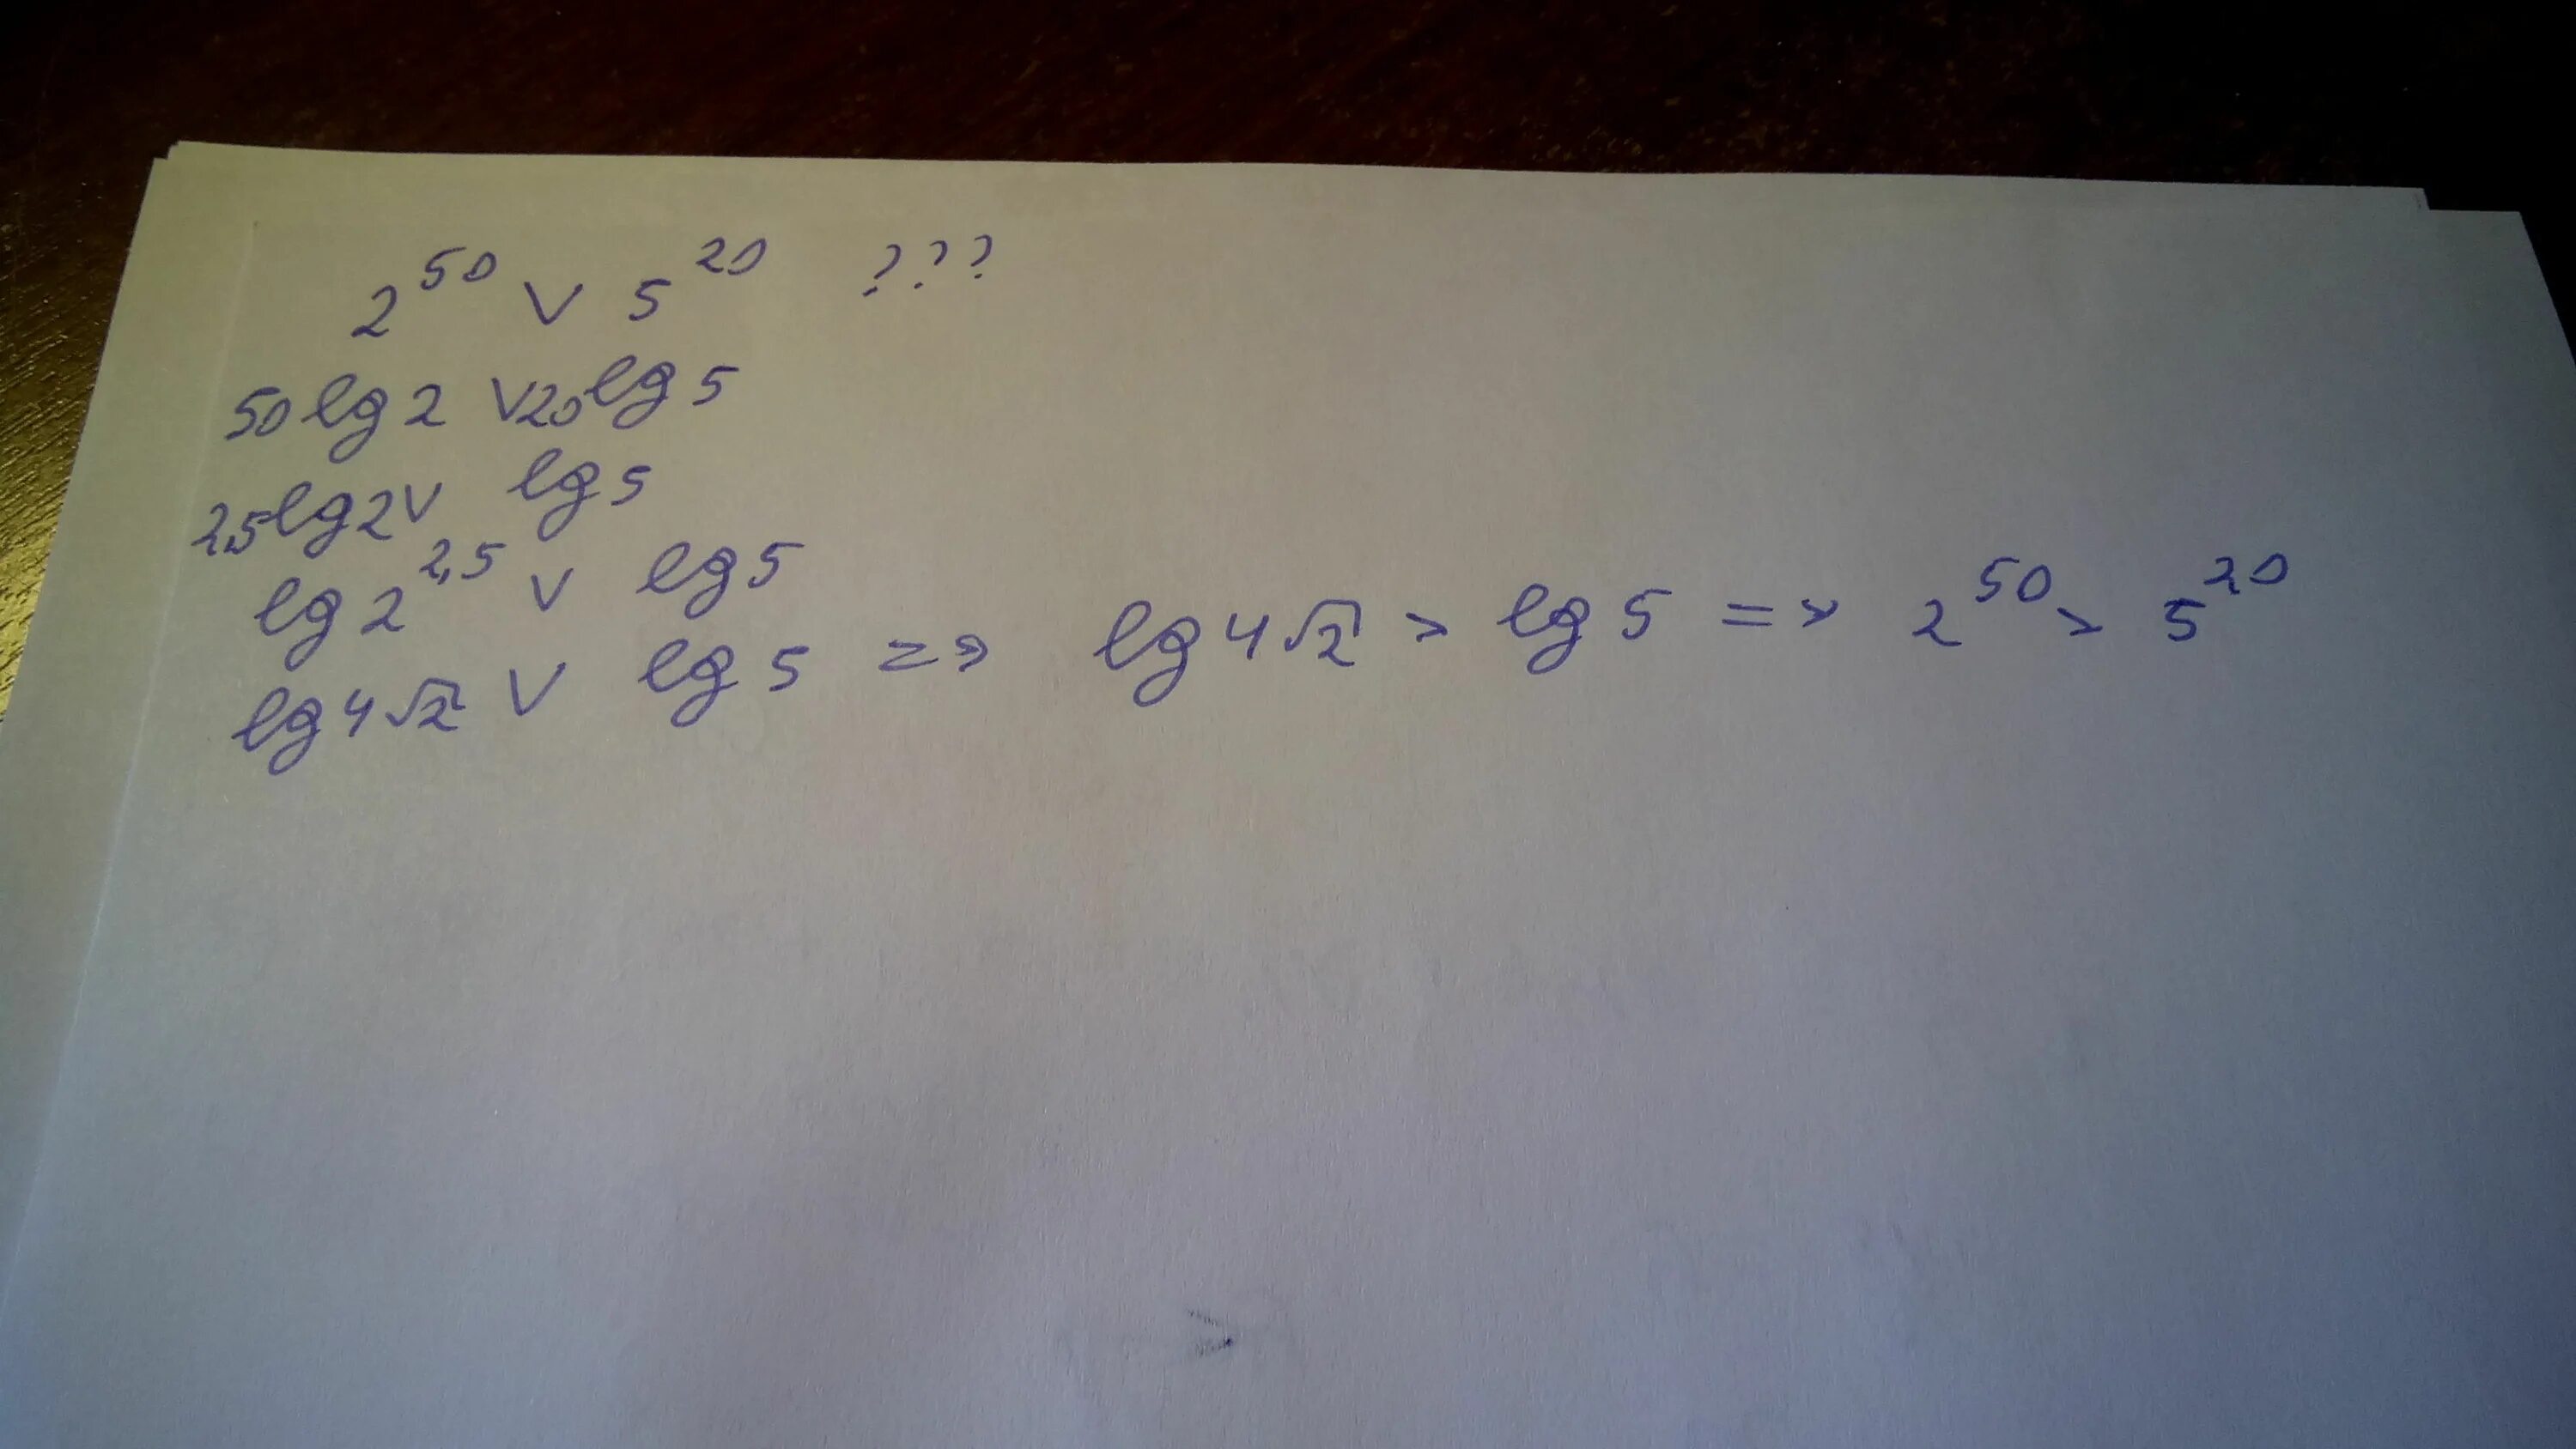 2^50 ∨ 5^20 ???
50 lg 2 ∨ 20 lg 5
2,5 lg 2 ∨ lg 5
lg 2^2,5 ∨ lg 5
lg 4√2 ∨ lg 5 => lg 4√2 > lg 5 => 2^50 > 5^20